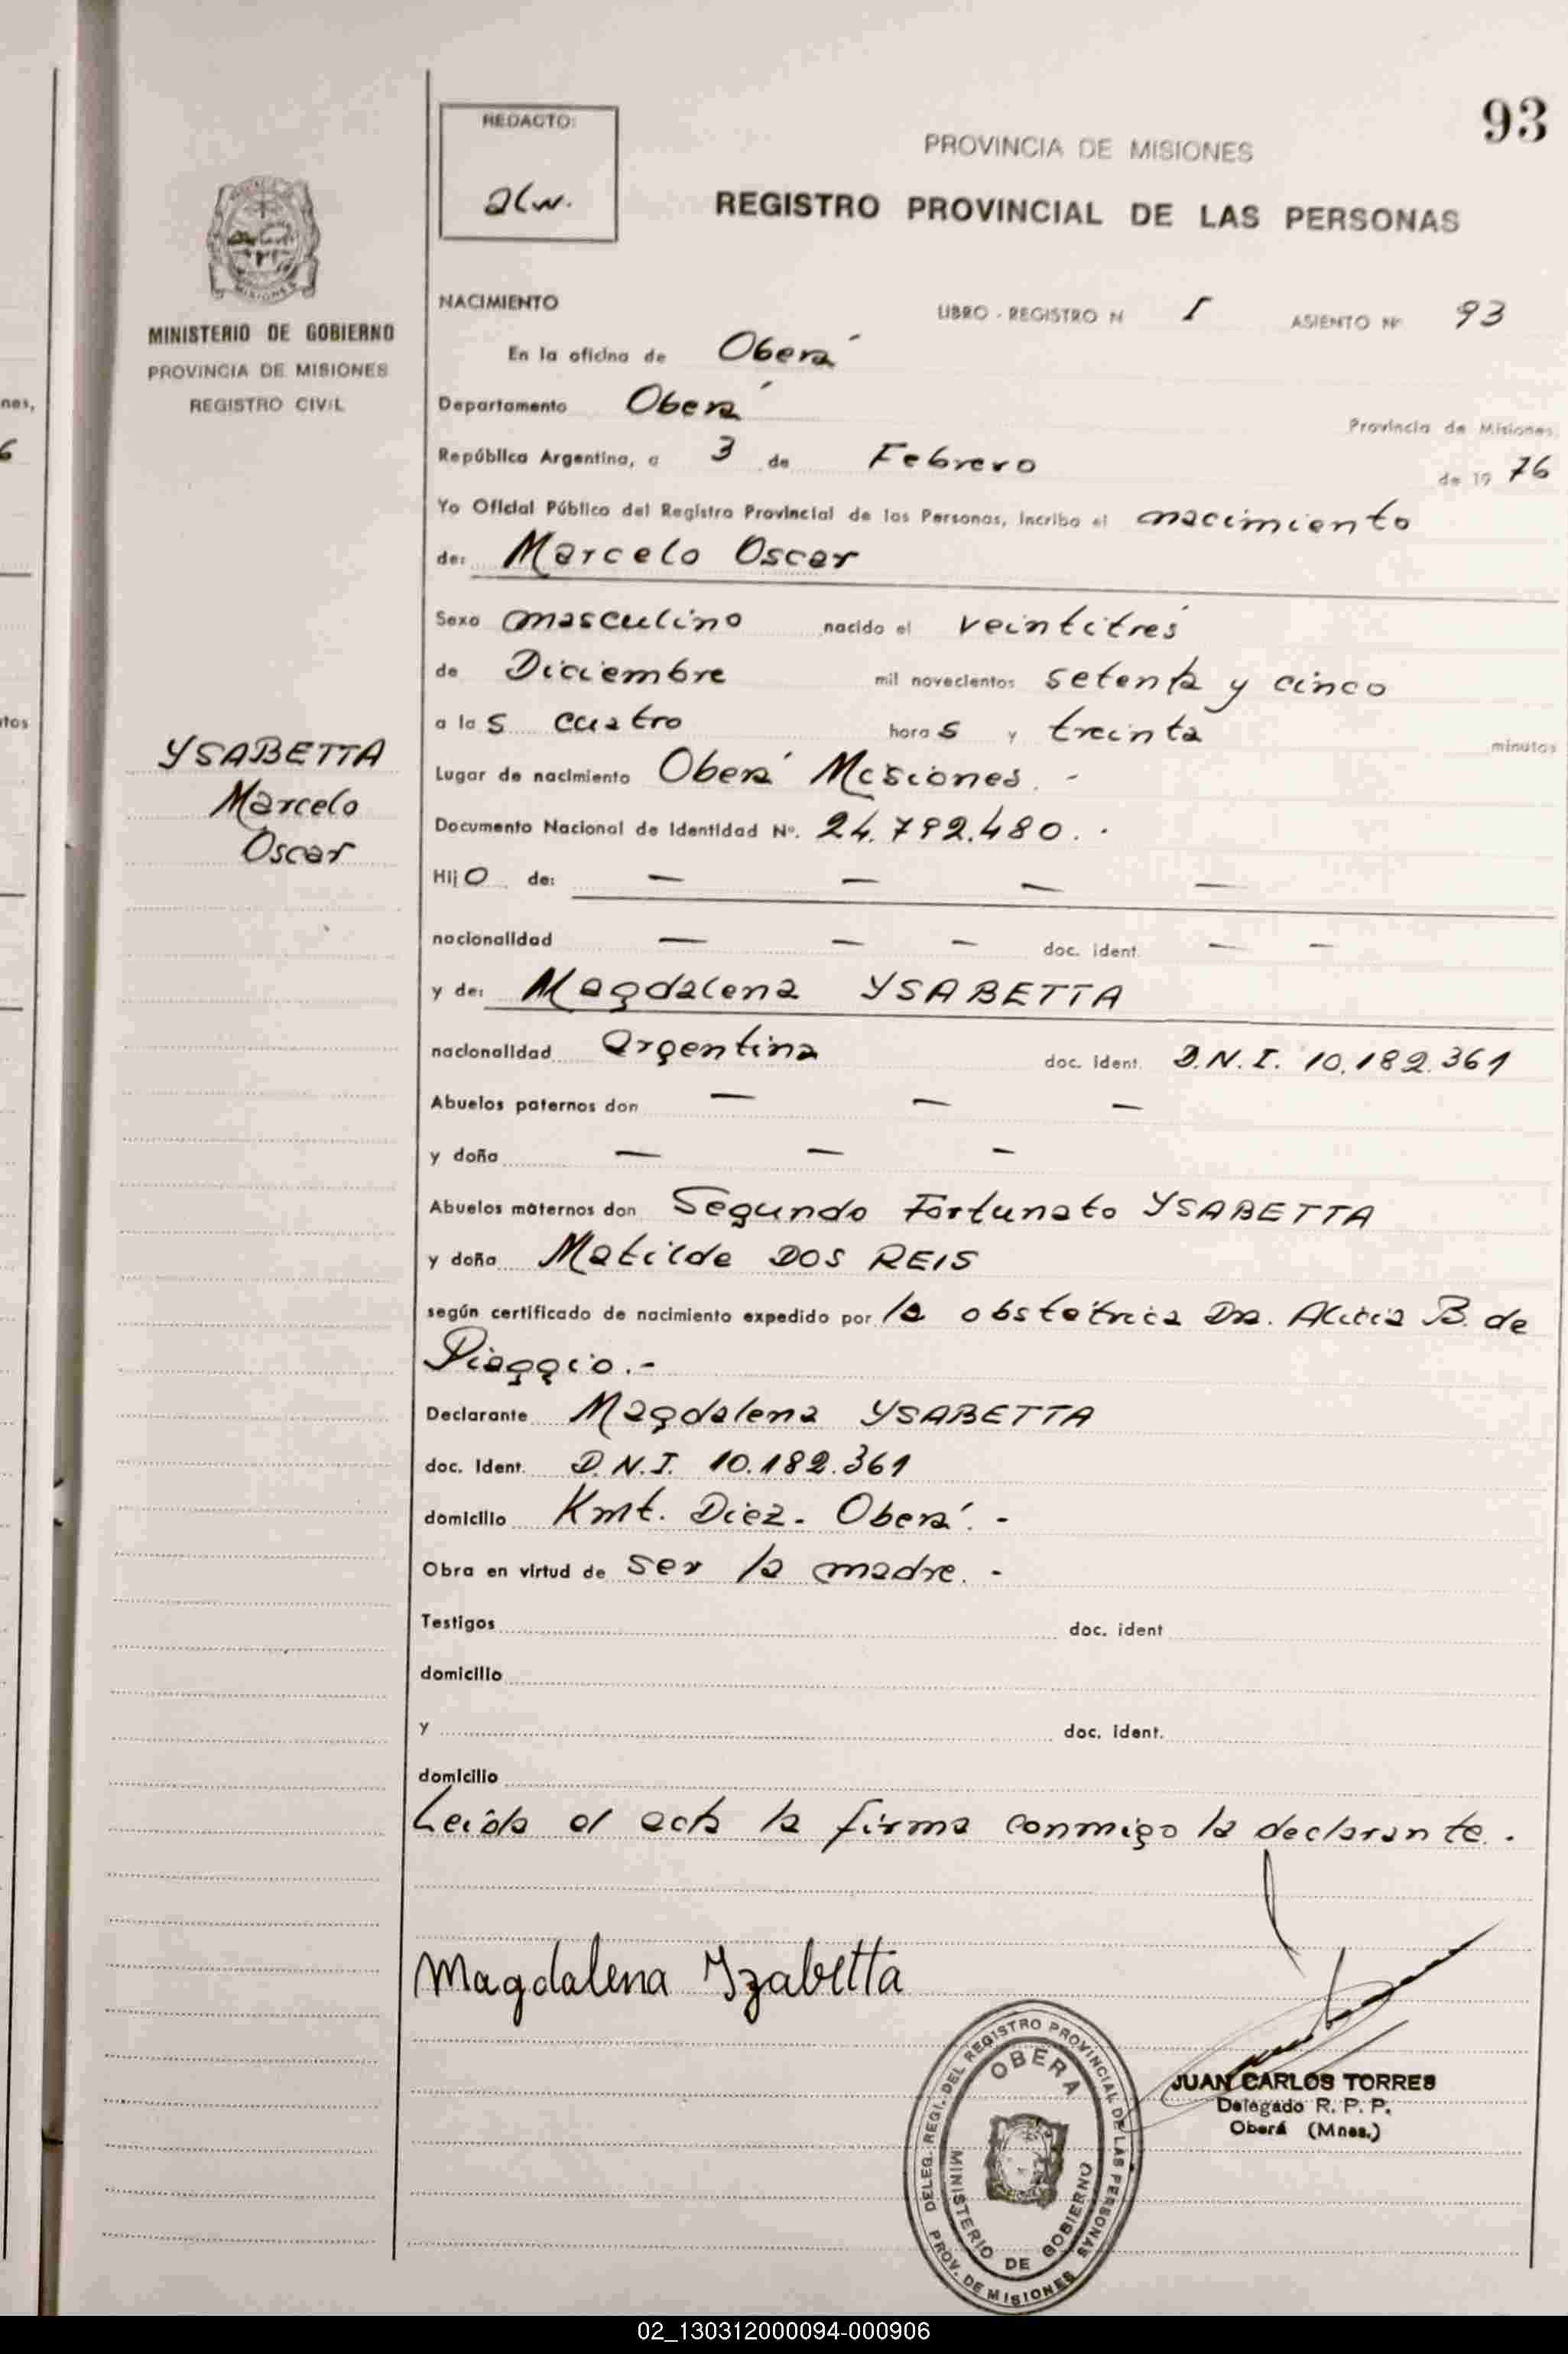 93
REDACTO:
PROVINCIA DE MISIONES
REGISTRO PROVINCIAL DE LAS PERSONAS
MISIONES
MINISTERIO DE GOBIERNO
PROVINCIA DE MISIONES
REGISTRO CIVIL
NACIMIENTO LIBRO - REGISTRO N I ASIENTO Nº 93
En la oficina de Oberá
nes,
Departamento Oberá Provincia de Misiones,
6
República Argentina, a 3 de Febrero de 19 76
Yo Oficial Público del Registro Provincial de las Personas, incribo el nacimiento
de: Marcelo Oscar
Sexo masculino nacido el veintitrés
de Diciembre mil novecientos setenta y cinco
a las cuatro horas y treinta minutos
tos
YSABETTA
Marcelo
Oscar
Lugar de nacimiento Oberá Misiones. -
Documento Nacional de Identidad Nº. 24.792.480. -
Hijo de: — — — —
nacionalidad — — — doc. ident. — —
y de: Magdalena YSABETTA
nacionalidad Argentina doc. ident. D.N.I. 10.182.361
Abuelos paternos don — — —
y doña — — —
Abuelos maternos don Segundo Fortunato YSABETTA
y doña Matilde DOS REIS
según certificado de nacimiento expedido por la obstétrica Dra. Alicia B. de
Piaggio.-
Declarante Magdalena YSABETTA
doc. Ident. D.N.I. 10.182.361
domicilio Kmt. Diez. Oberá. -
Obra en virtud de ser la madre. -
Testigos doc. ident
domicilio
y doc. ident.
domicilio
Leída el acta la firma conmigo la declarante.
Magdalena Yzabetta
DELEG. REGI. DEL REGISTRO PROVINCIAL DE LAS PERSONAS
OBERA
MINISTERIO DE GOBIERNO
PROV. DE MISIONES
JUAN CARLOS TORRES
Delegado R. P. P.
Oberá (Mnes.)
02_130312000094-000906